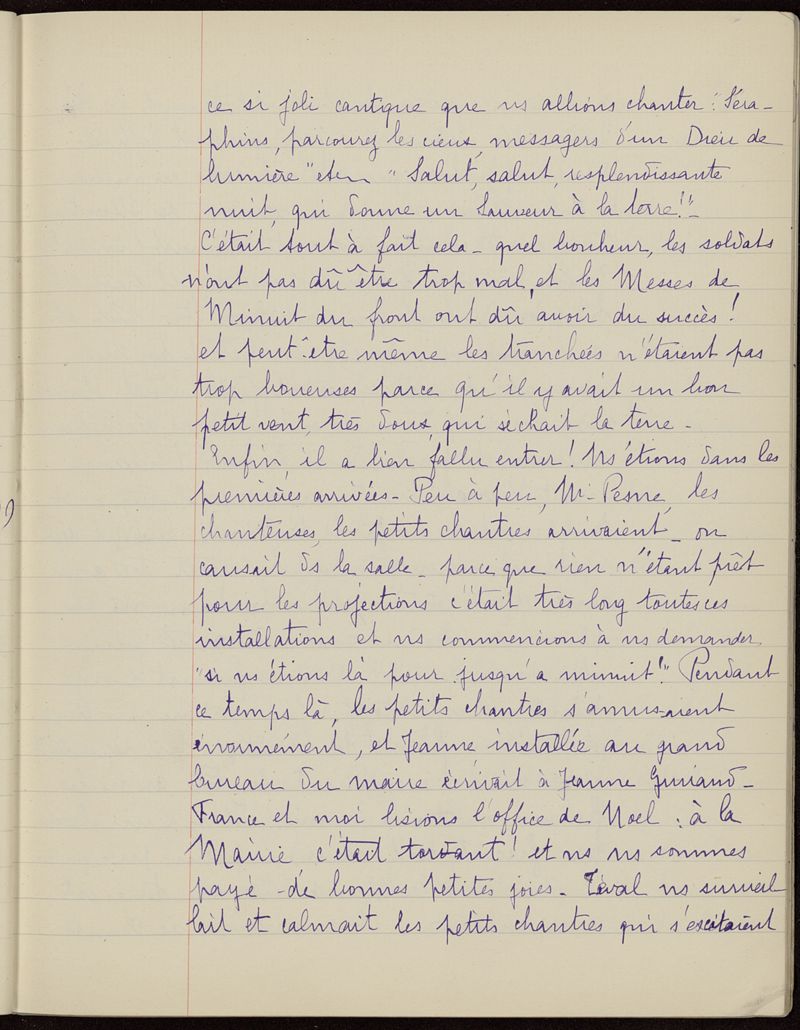 ce si joli cantique que ns allions chanter : "Séra-
phins, parcourez les cieux, messagers d'un Dieu de
lumière" etc " Salut, salut, resplendissante
nuit, qui donne un Sauveur à la terre!" -
C'était tout à fait cela - quel bonheur, les soldats
n'ont pas dû être trop mal, et les Messes de
Minuit du front ont dû avoir du succès !
et peut-être même les tranchées n'étaient pas
trop boueuses parce qu'il y avait un bon
petit vent, très doux, qui séchait la terre -
Enfin, il a bien fallu entrer ! Ns étions dans les
premières arrivées - Peu à peu, Mr Pesne, les
chanteuses, les petits chantres arrivaient - on
causait ds la salle - parce que rien n'étant prêt
pour les projections c'était très long toutes ces
installations et ns commencions à ns demander
"si ns étions là pour jusqu'a minuit !" Pendant
ce temps là, les petits chantres s'amusaient
énormément, et Jeanne installée au grand
bureau du maire écrivait à Jeanne -
France et moi lisions l'office de Noel : à la
Mairie c'était tordant ! et ns ns sommes
payé de bonnes petites joies - ns surveil
lait et calmait les petits chantres qui s'excitaient